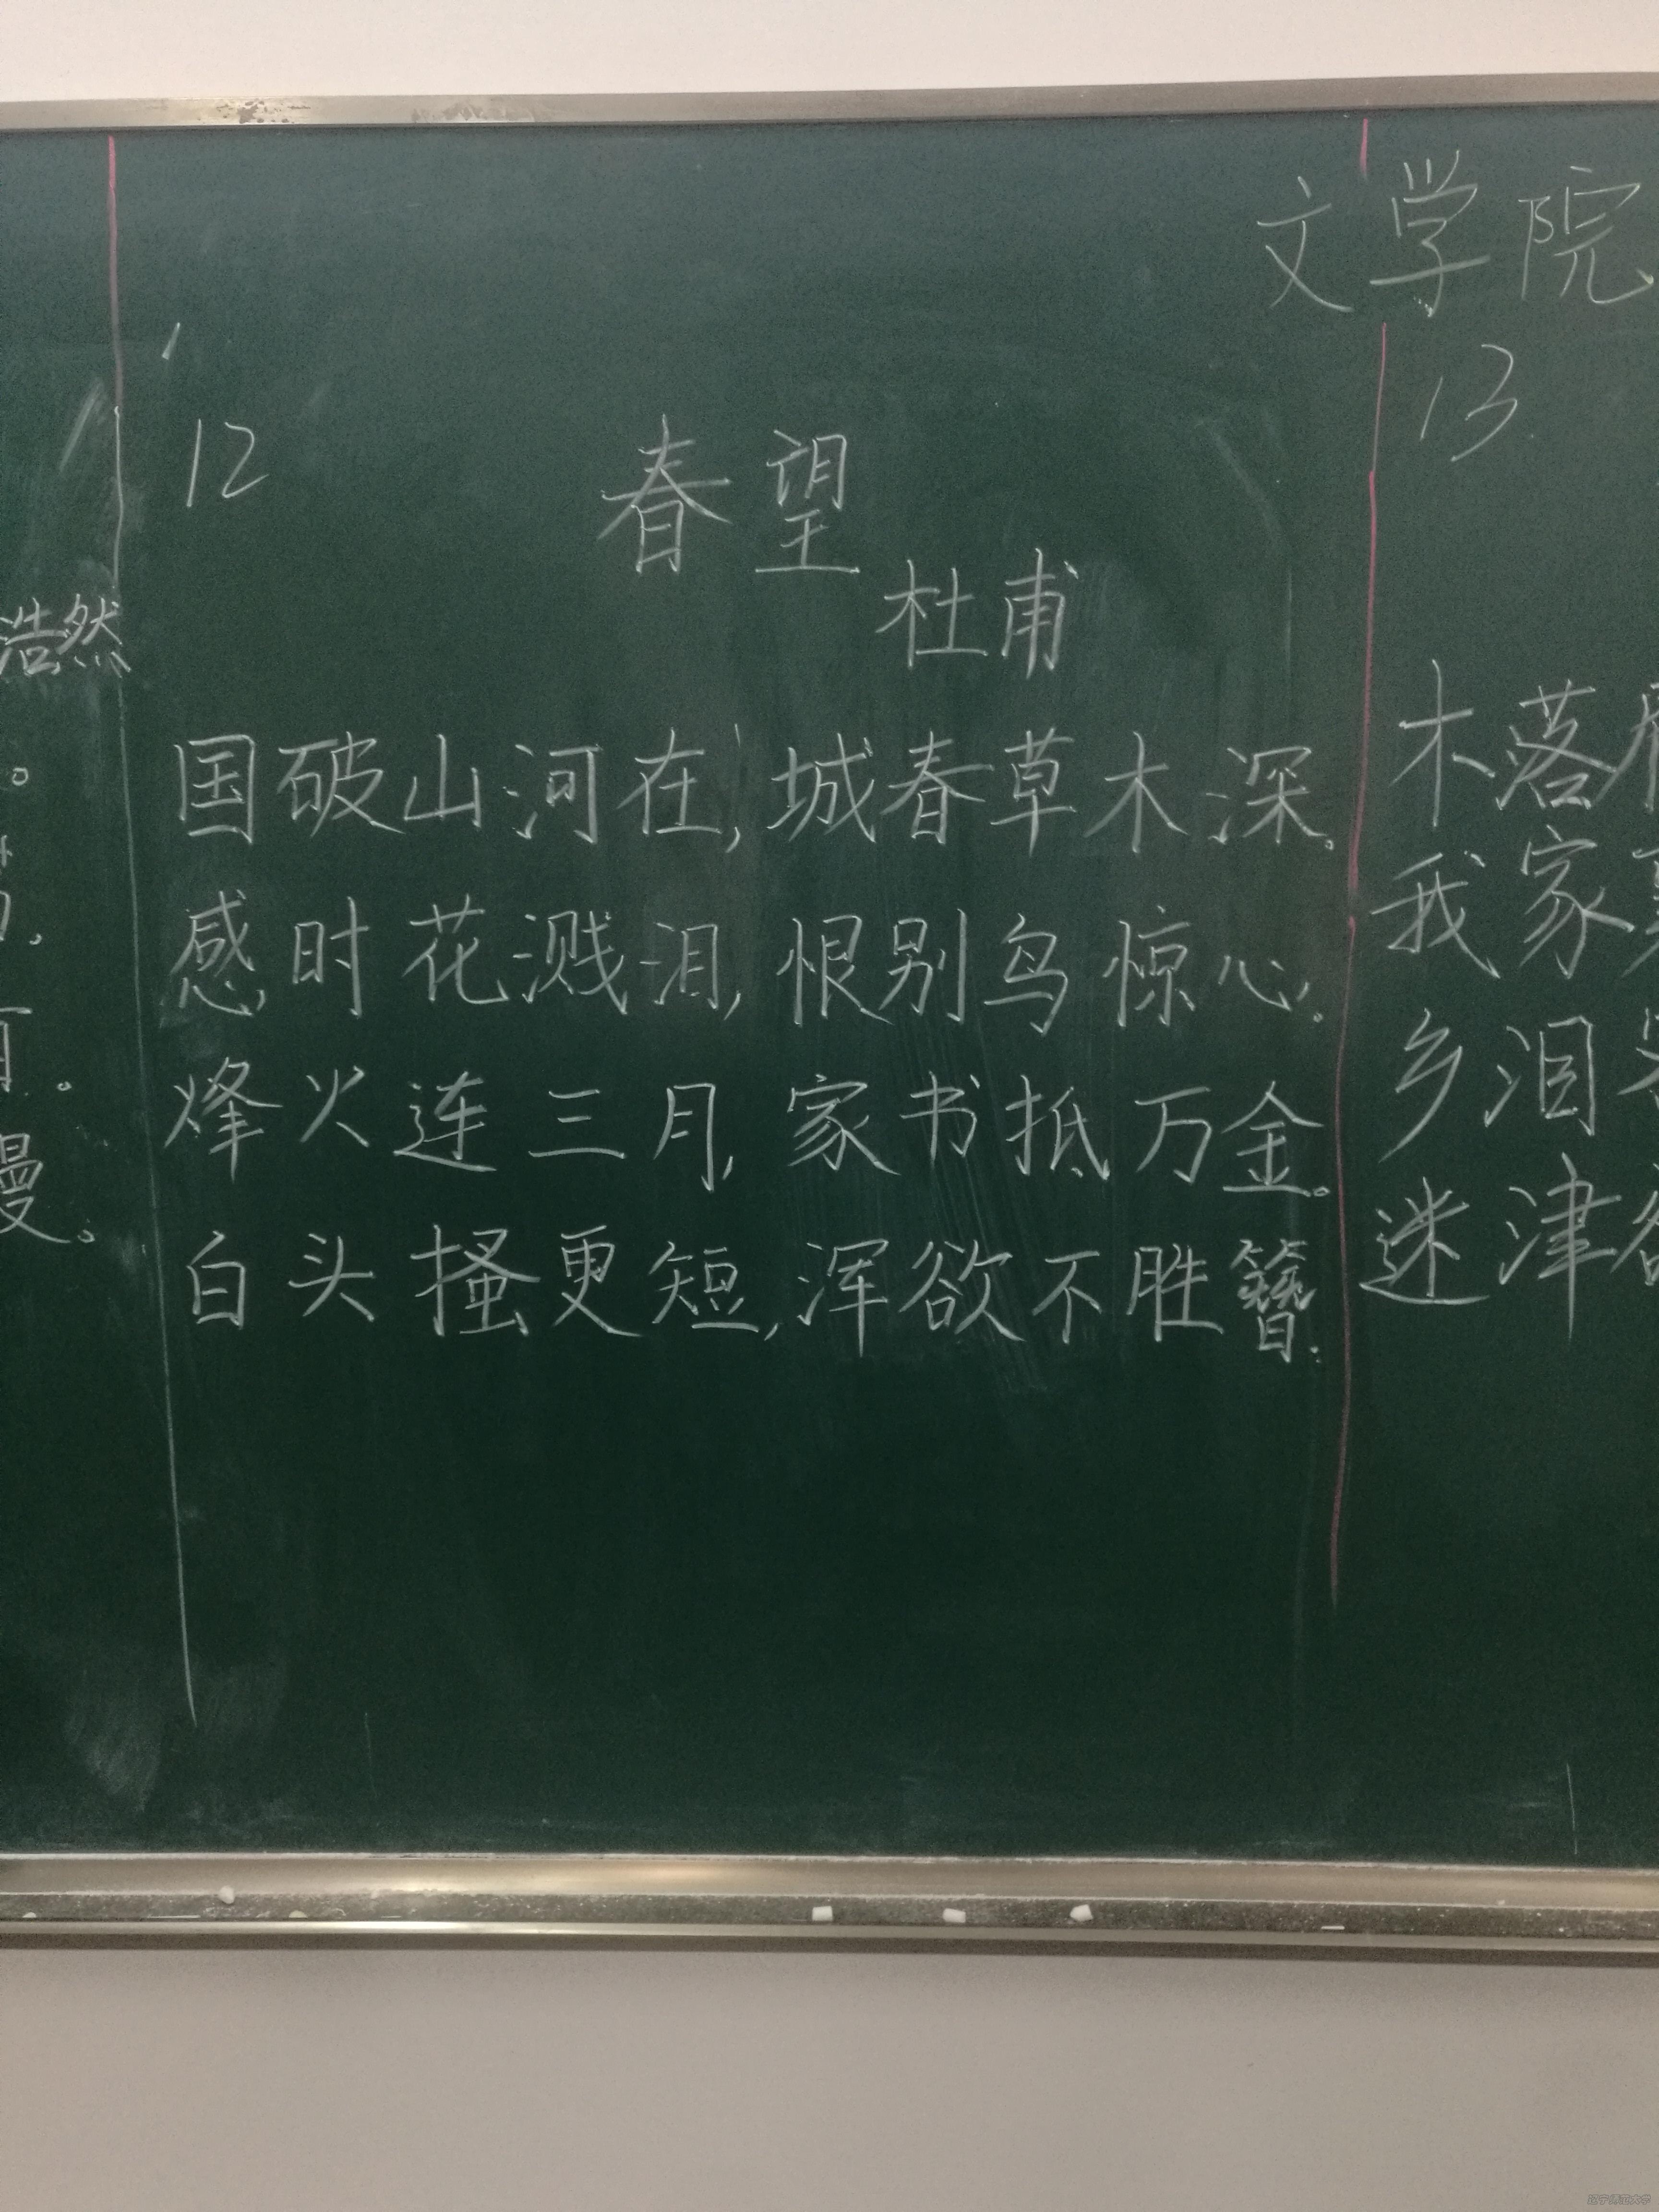 文学院
12
春望
杜甫
国破山河在,城春草木深。
感时花溅泪,恨别鸟惊心。
烽火连三月,家书抵万金。
白头搔更短,浑欲不胜簪。
浩然
。
,
。
漫。
13
木落
我家
乡泪
迷津